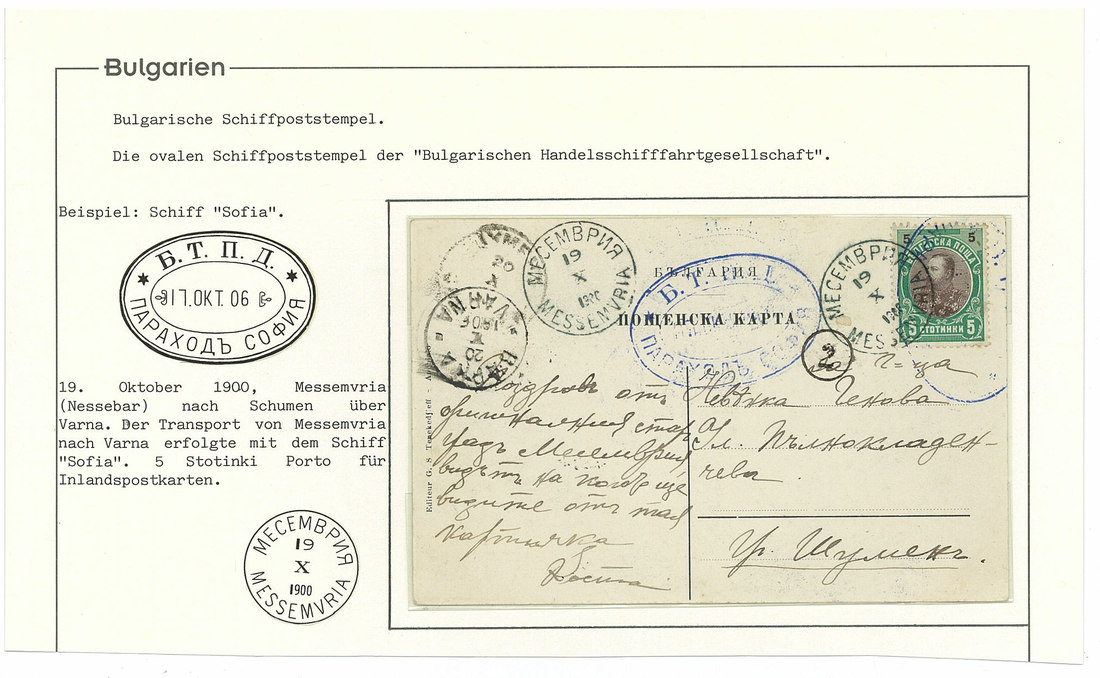 Bulgarien
Bulgarische Schiffpoststempel.
Die ovalen Schiffpoststempel der "Bulgarischen Handelsschifffahrtgesellschaft".
Beispiel: Schiff "Sofia".
Б. Т. П. Д.
17.ОКТ. 06
ПАРАХОДЪ СОФИЯ
19. Oktober 1900, Messemvria
(Nessebar) nach Schumen über
Varna. Der Transport von Messemvria
nach Varna erfolgte mit dem Schiff
"Sofia". 5 Stotinki Porto für
Inlandspostkarten.
МЕСЕМВРИЯ
19
X
1900
MESSEMVRIA
МЕСЕМВРИЯ
19
X
1900
MESSEMVRIA
20
X
VARNA
20
X
БЪЛГАРИЯ
ПОЩЕНСКА КАРТА
Б. Т. П.
ПАРАХОДЪ
МЕСЕМВРИЯ
19
X
MESSE
5 5
ПОЩА
5 СТОТИНКИ 5
Editeur G. S. Tenekedjieff
Поздравъ отъ
оригиналния старъ
градъ Месемврия
видътъ на когото ще
видите отъ тая
картичка
Коста
Г-ца
Невѣнка Генова
Ул. Пълнокладен-
чева.
Гр. Шуменъ.